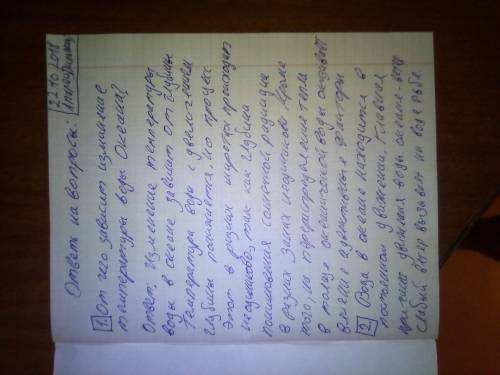 22.10.2018
Ответь на вопросы:
1. От чего зависит изменение
температуры воды Океана?
Ответ: Изменение температуры
воды в океане зависит от глубины
Температура воды с увеличением
глубины понижается. Но процесс
этот в разных широтах происходит
неодинаково, так как глубина
проникновения солнечной радиации
в разных зонах неодинакова. Кроме
того, на перераспределение тепла
в толще океанической воды оказывает
влияние адвективные факторы.
2. Вода в океане находится в
постоянном движении. Главная
причина движения воды океана - ветер
слабый ветер вызывает на воде рябь.